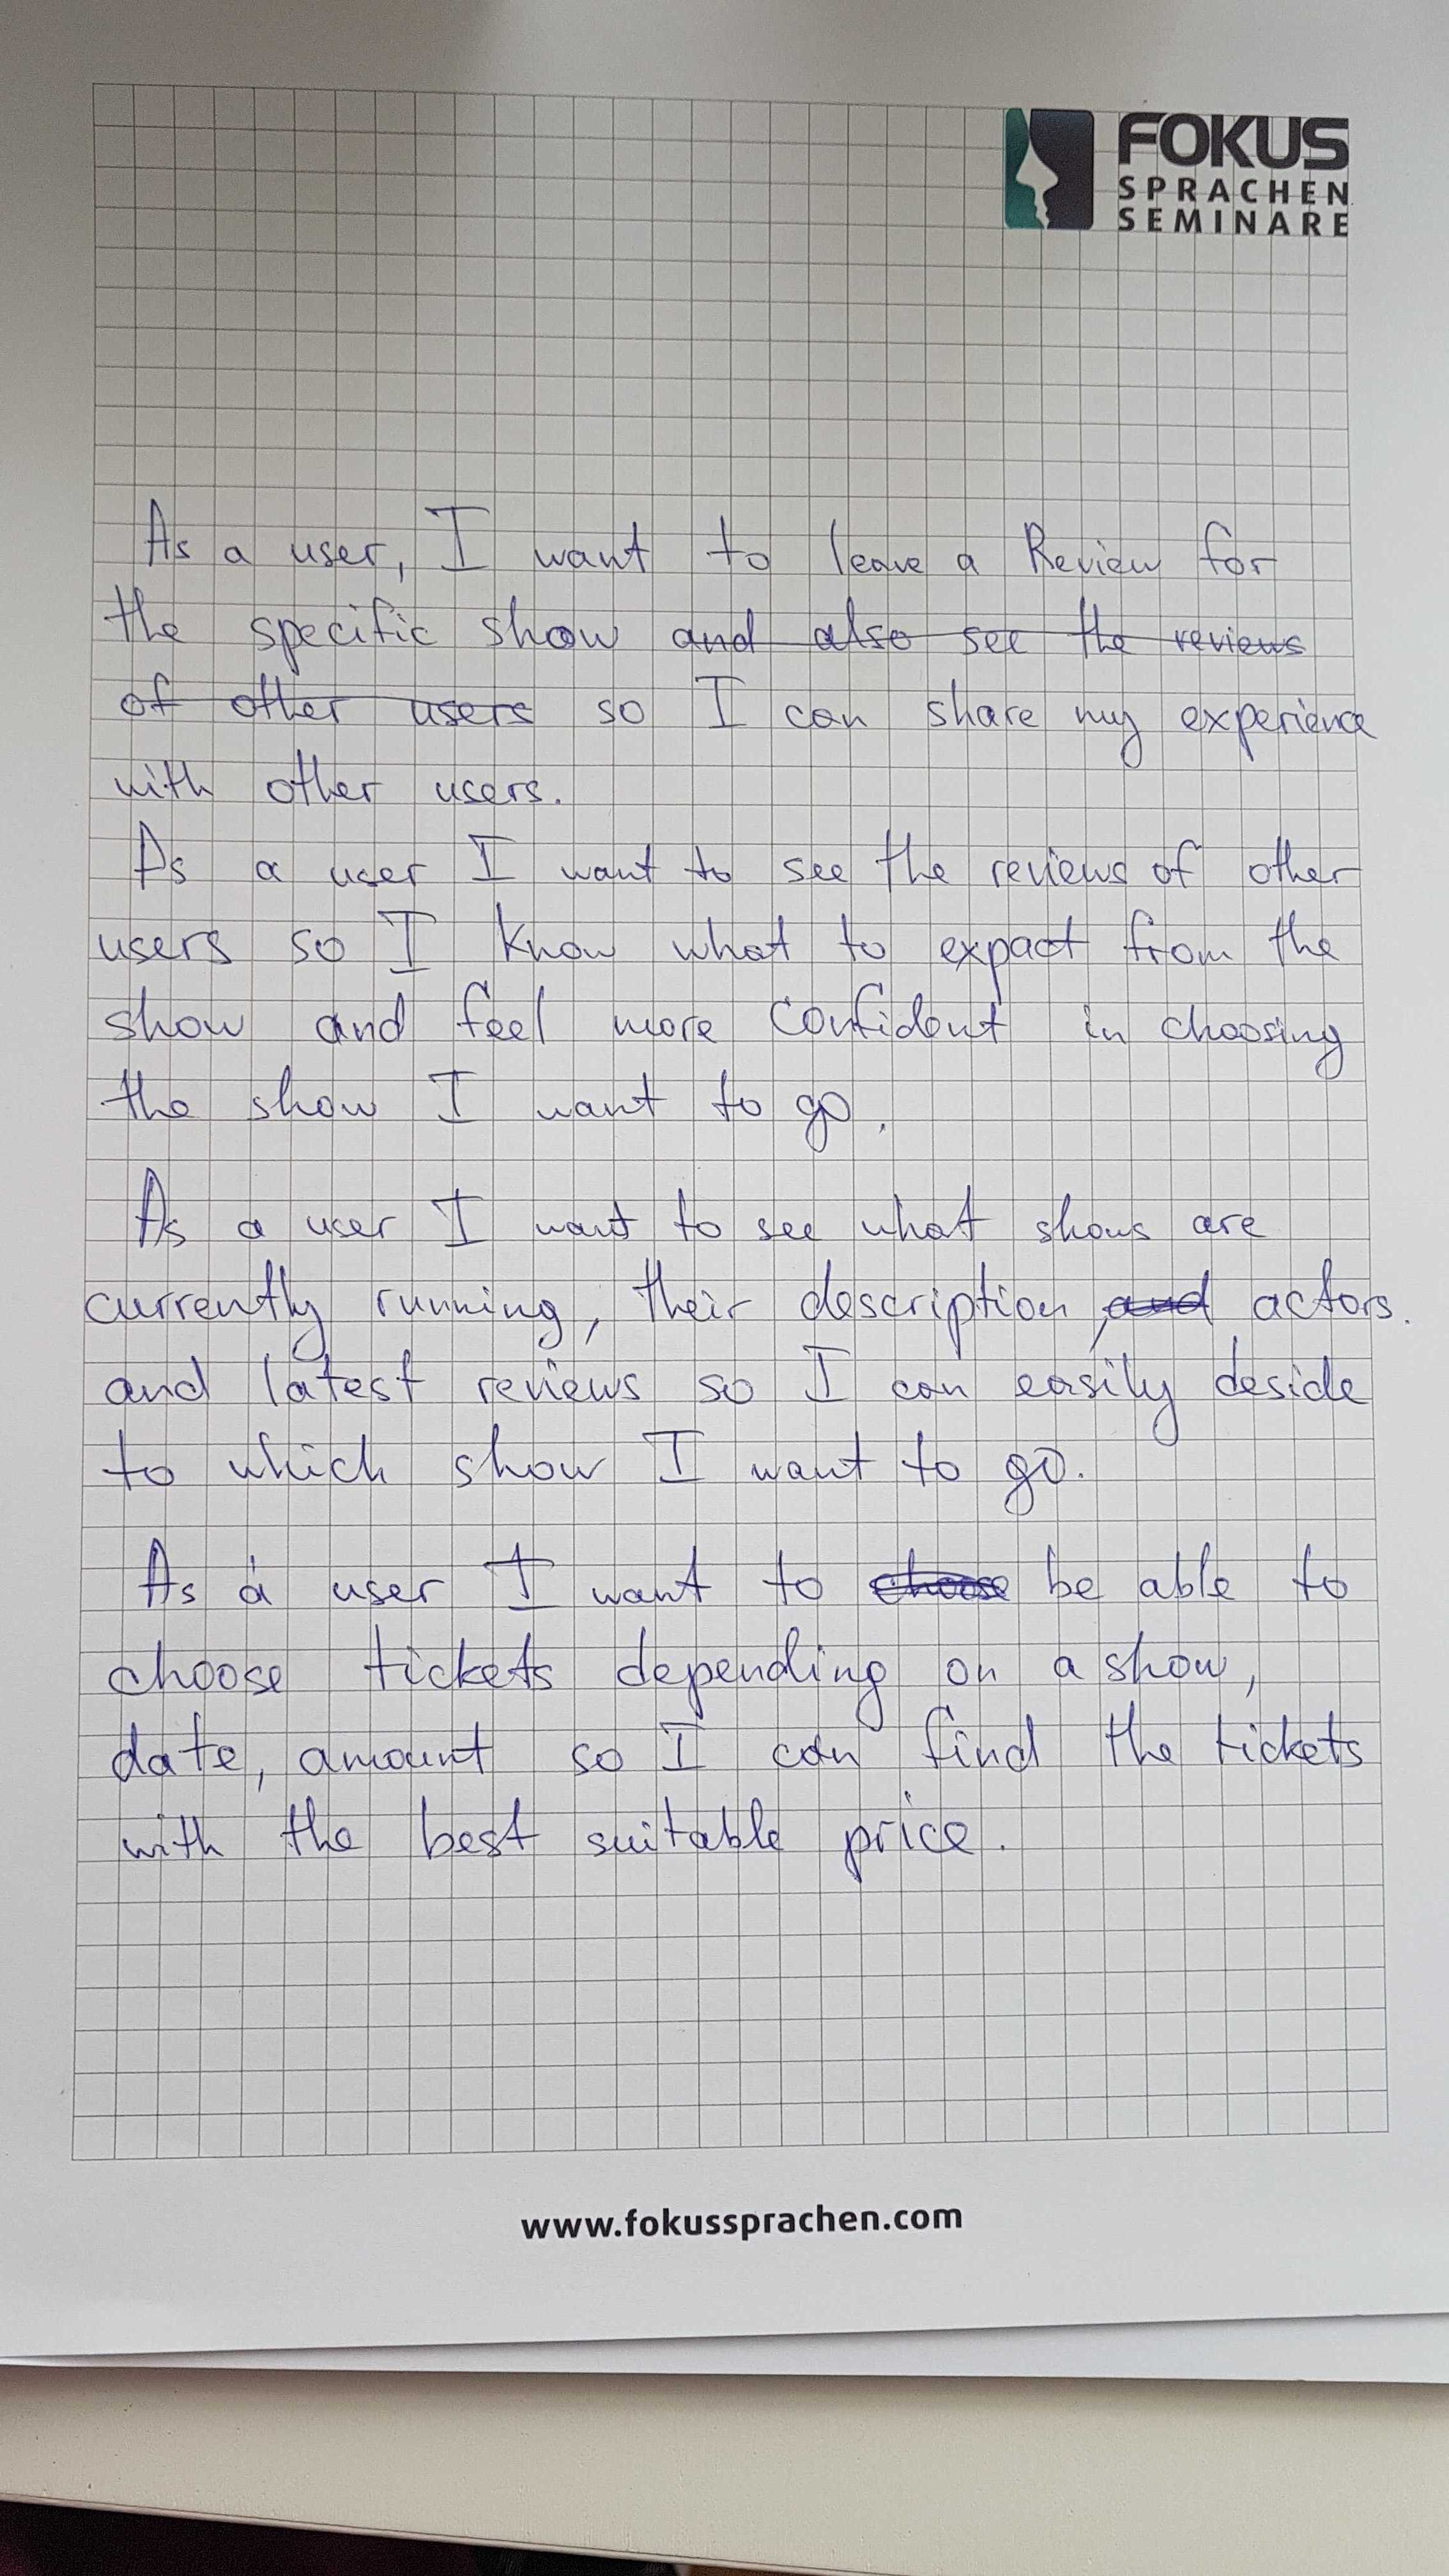 FOKUS
SPRACHEN
SEMINARE
As a user, I want to leave a Review for
the specific show and also see the reviews
of other users so I can share my experience
with other users.
As a user I want to see the reviews of other
users so I know what to expact from the
show and feel more confident in choosing
the show I want to go.
As a user I want to see what shows are
currently running, their description, and actors.
and latest reviews so I can easily deside
to which show I want to go.
As a user I want to choose be able to
choose tickets depending on a show,
date, amount so I can find the tickets
with the best suitable price.
www.fokussprachen.com